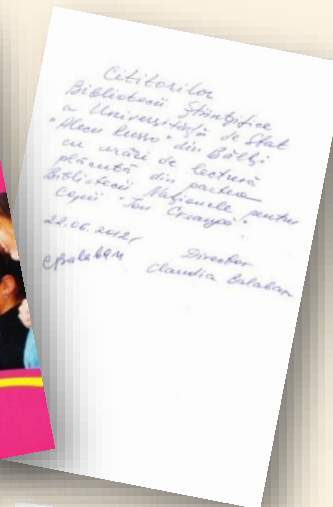 Cititorilor
Bibliotecii Științifice
a Universității de Stat
"Alecu Russo" din Bălți
cu urări de lectură
plăcută din partea
Bibliotecii Naționale pentru
Copii "Ion Creangă".
22.06.2012
Director
CBalaban Claudia Balaban